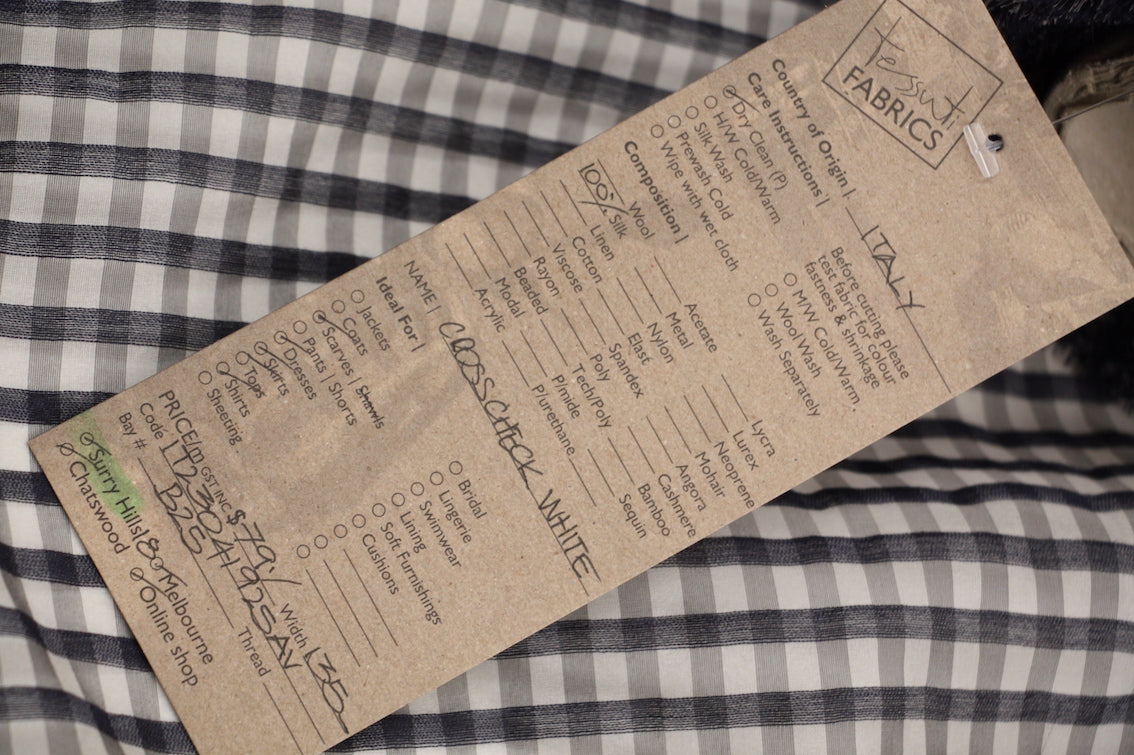 tessuti
FABRICS
Country of Origin | ITALY
Care Instructions |
Dry Clean (P)
H/W Cold/Warm
Silk Wash
Prewash Cold
Wipe with wet cloth
Before cutting please
test fabric for colour
fastness & shrinkage
M/W Cold/Warm
Wool Wash
Wash Separately
Composition |
Wool
100% Silk
Linen
Cotton
Viscose
Rayon
Beaded
Modal
Acrylic
Acetate
Metal
Nylon
Elast
Spandex
Poly
Tech/Poly
P/mide
P/urethane
Lycra
Lurex
Neoprene
Mohair
Angora
Cashmere
Bamboo
Sequin
NAME | CROSSCHECK WHITE
Ideal For |
Jackets
Coats
Scarves | Shawls
Pants | Shorts
Dresses
Skirts
Tops
Shirts
Sheeting
Bridal
Lingerie
Swimwear
Lining
Soft Furnishings
Cushions
PRICE/m GST INC $ 79./ Width 135
Code
Bay # B25 Thread
Surry Hills Melbourne
Chatswood Online shop